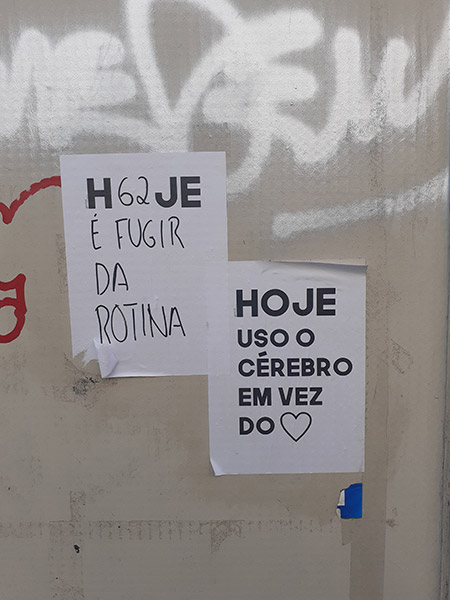 H62JE
É FUGIR
DA
ROTINA
HOJE
USO O
CÉREBRO
EM VEZ
DO ♡